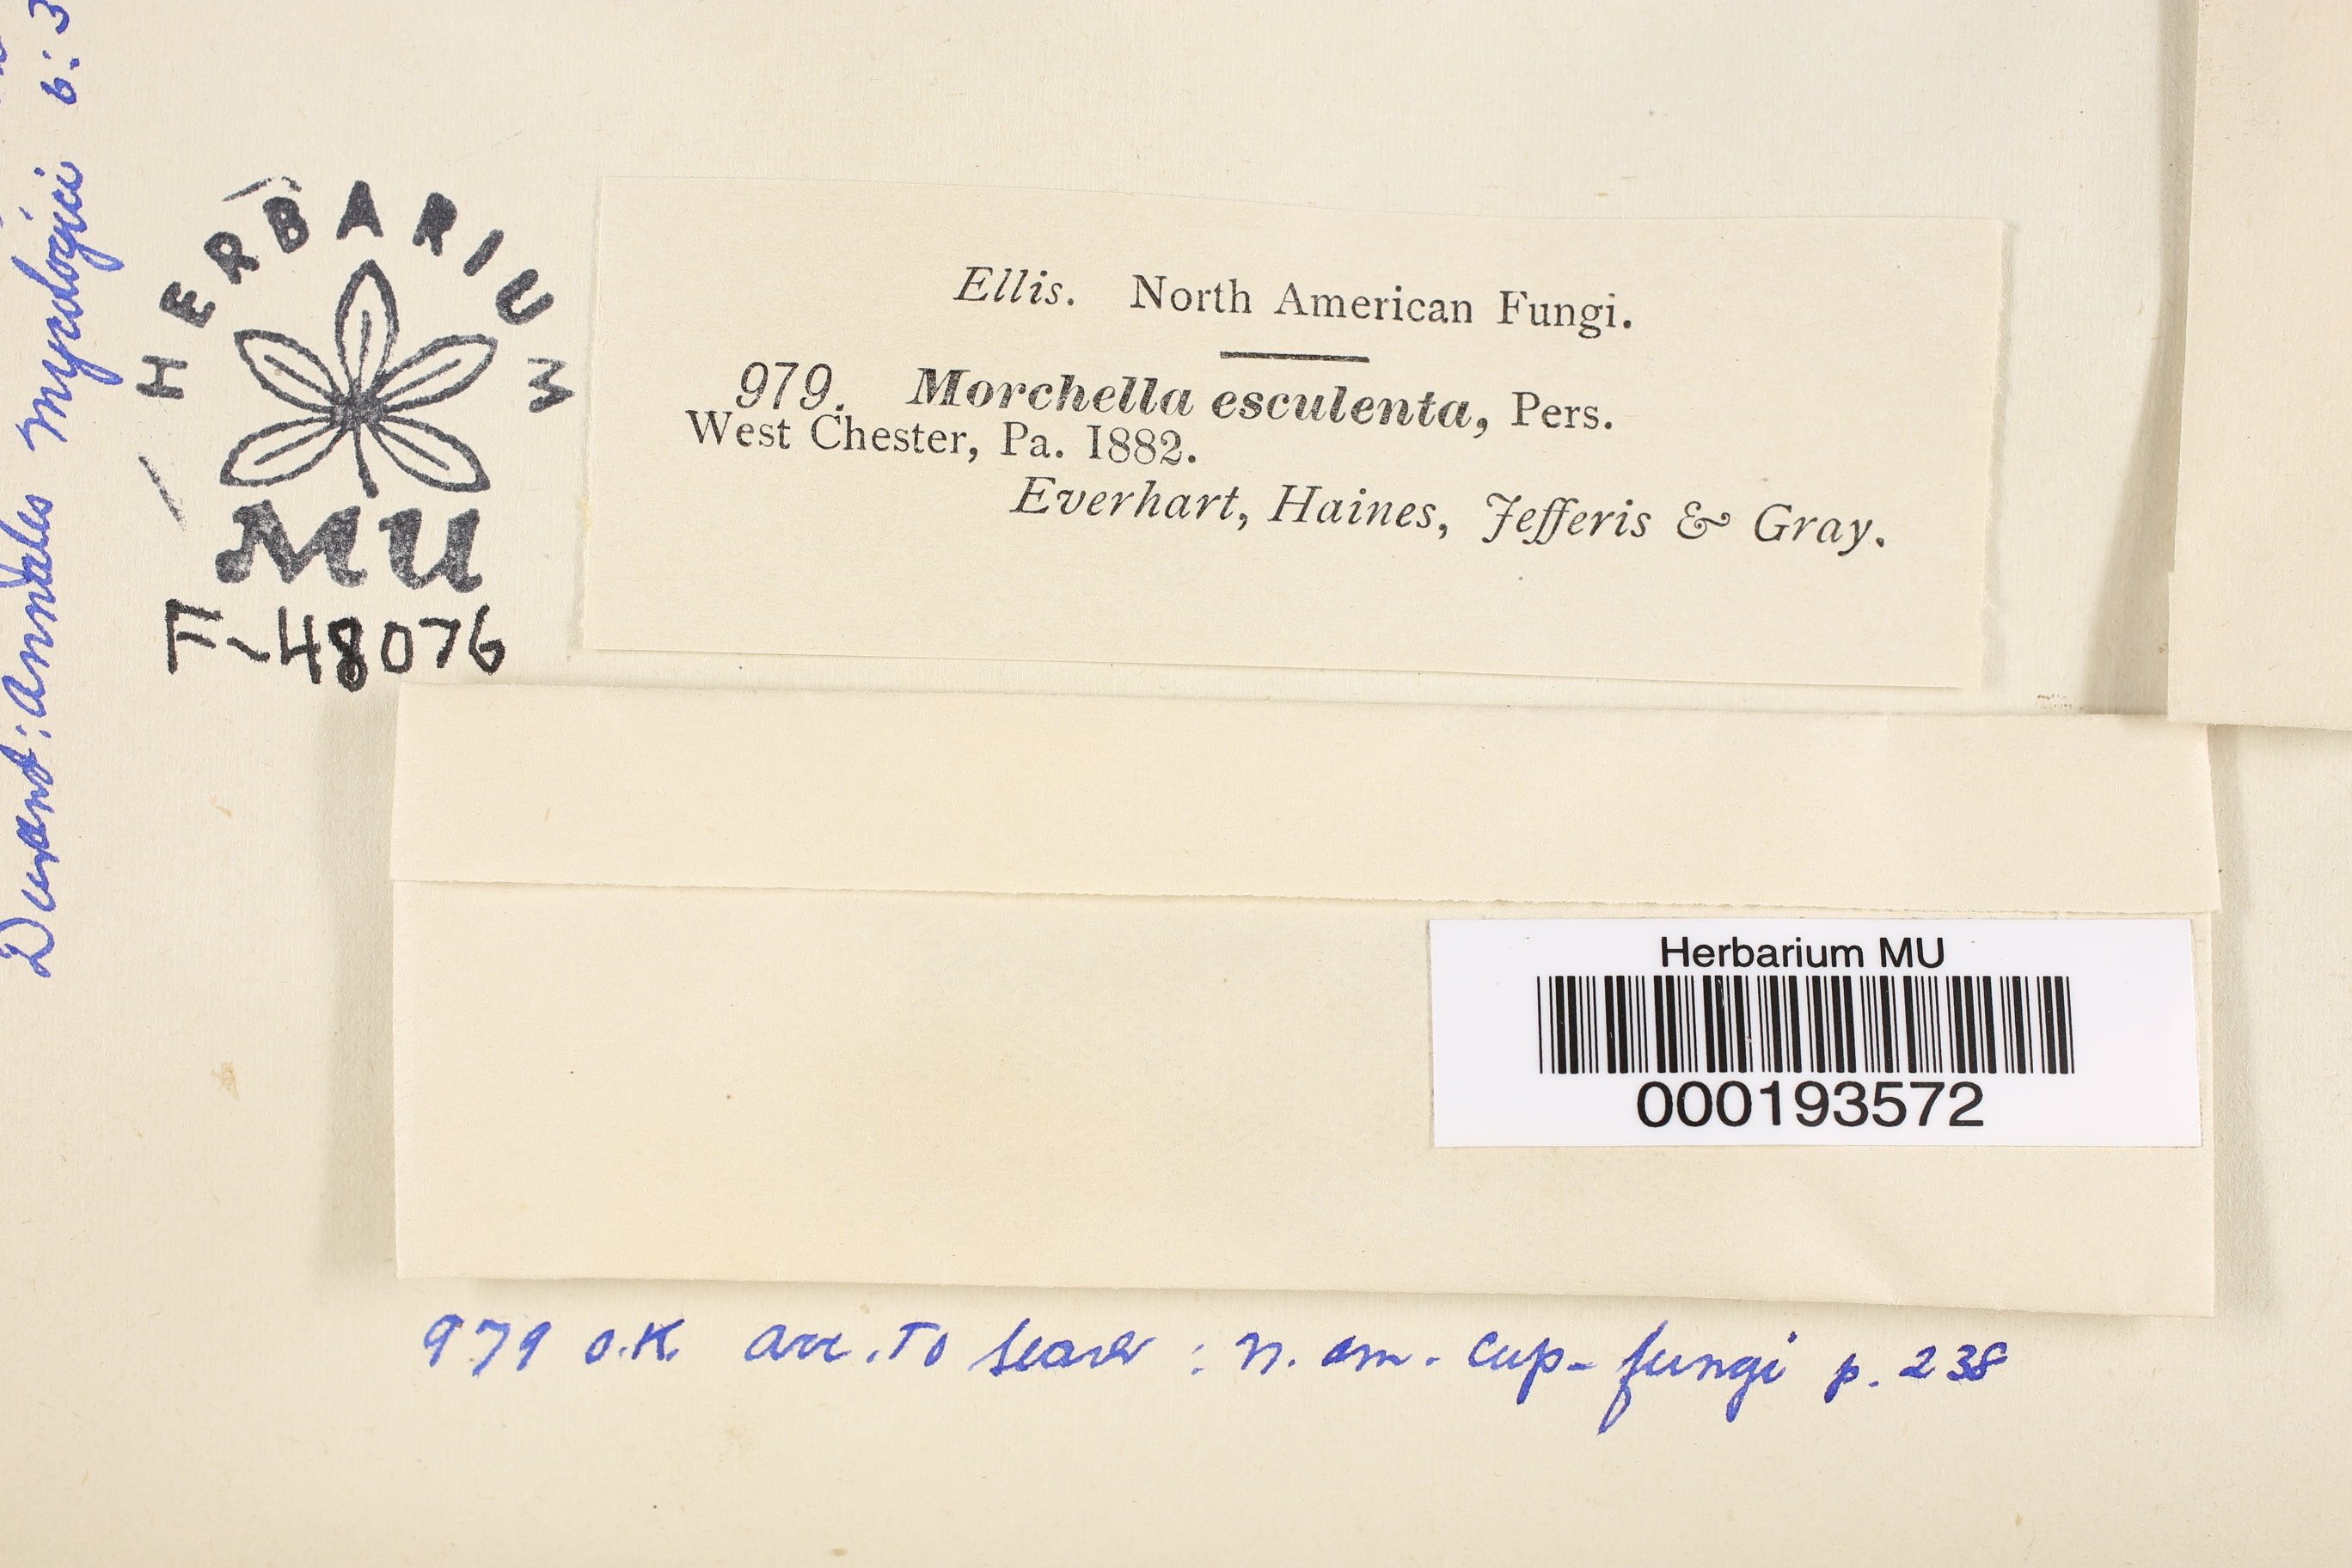 HERBARIUM
MU
F-48076
Ellis. North American Fungi.
979. Morchella esculenta, Pers.
West Chester, Pa. 1882.
Everhart, Haines, Jefferis & Gray.
Herbarium MU
000193572
979 O.K. acc. To Seaver : N. Am. Cup-fungi p. 238
Durand: Annales Mycologici 6: 3